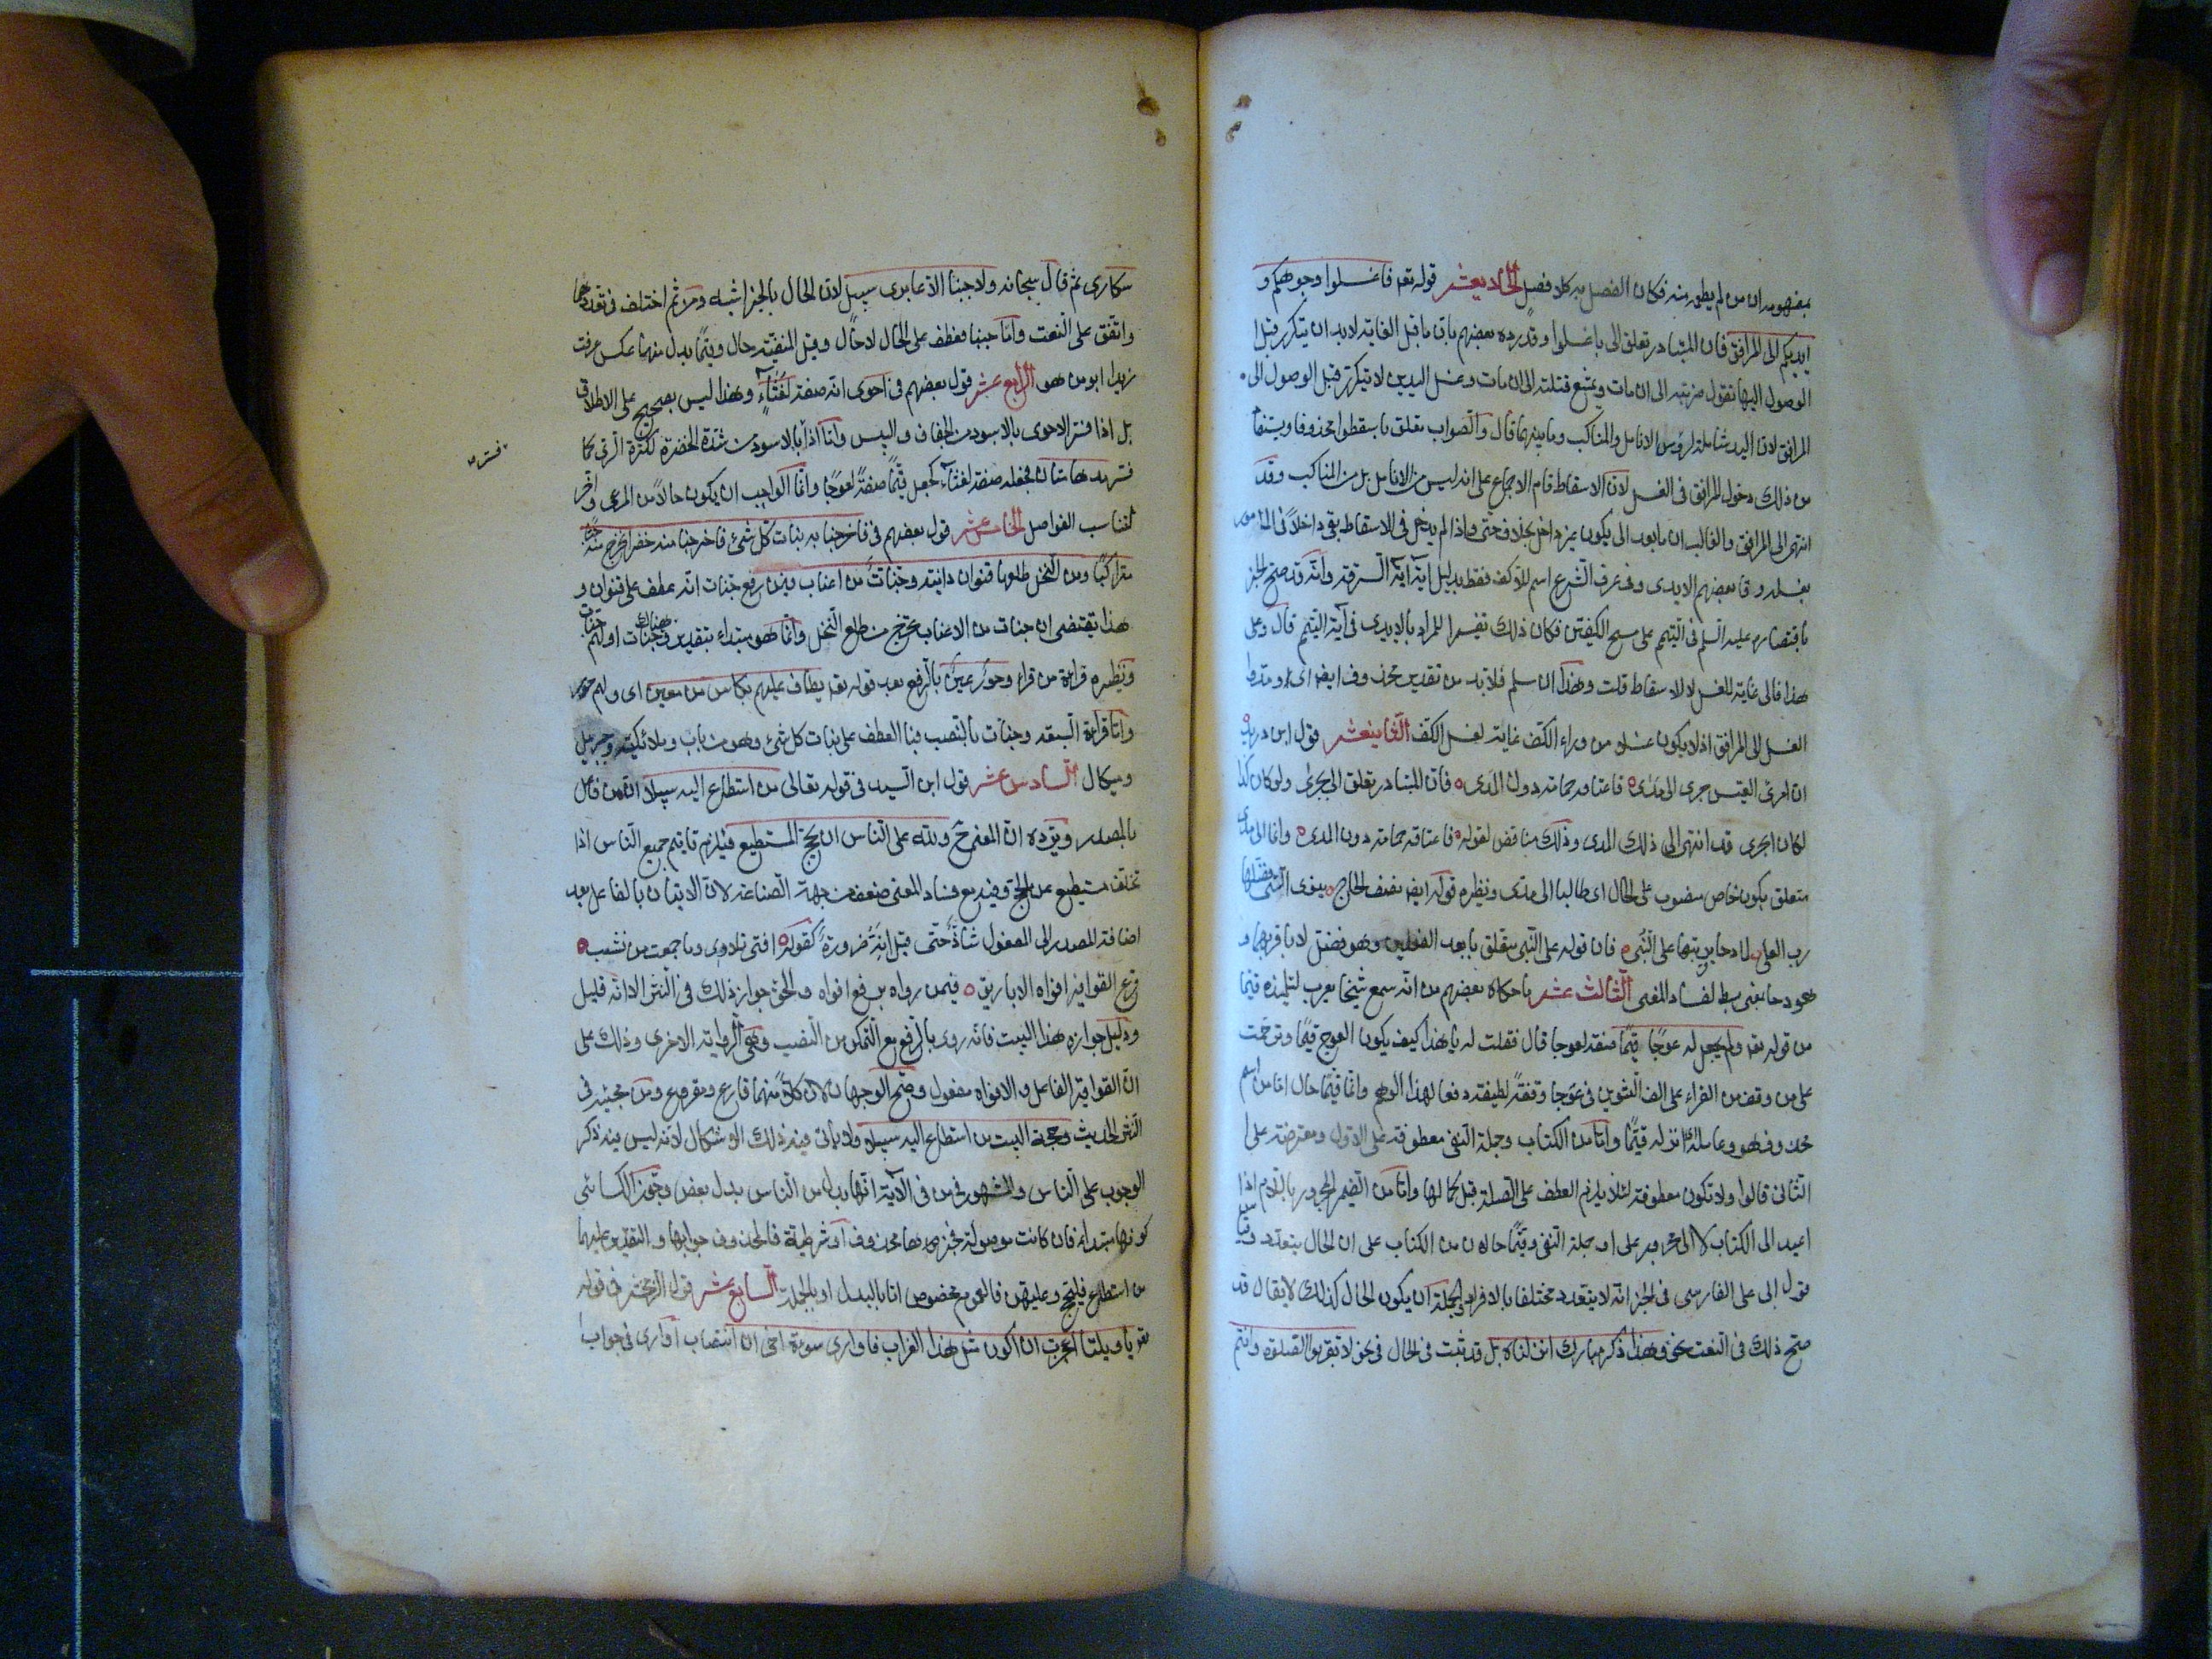 بمفهومه ان من لم يطعمه منه فكان الفصل به كلا فصل الحاديعشر قوله تعه فاغسلوا وجوهكم و
ايديكم الى المرافق فان المتبادر تعلق الى باغسلوا وقد رده بعضهم بان ما قبل الغاية لابد ان يتكرر قبل
الوصول اليها تقول ضربته الى ان مات ويمتنع قتلته الى ان مات وغسل اليدين لا يتكرر قبل الوصول الى
المرافق لان اليد شاملة لرؤس الانامل والمناكب وما بينهما قال والصواب تعلق باسقطوا محذوفا ويستفا
من ذلك دخول المرافق فى الغسل لان الاسقاط قام الاجماع على انه ليس من الانامل بل من المناكب وقد
انتهى الى المرافق والغالب ان ما بعد الى يكون غير داخل بخلاف حتى واذا لم يدخل فى الاسقاط بقى داخلاً فى المامور
بغسله وقا بعضهم الايدى فى عرف الشرع اسم للاكف فقط بدليل آية السرقة وانه قد صح الخبر
باقتصاره عليه السلم فى التيمم على مسح الكفين فكان ذلك تفسيرا للمراد بالايدى فى آية التيمم قال وعلى
هذا فالى غاية للغسل لا للاسقاط قلت وهذا ان سلم فلابد من تقدير محذوف ايضا اى ومدوا
الغسل الى المرافق اذ لا يكون غسل ما وراء الكف غاية لغسل الكف الثانيعشر قول ابن دريد
ان امرئ القيس جرى الى مدى فاعتاقه حمامه دون المدى فان المتبادر تعلق الى بجرى ولو كان كذا
لكان الجرى قد انتهى الى ذلك المدى وذلك مناقض لقوله فاعتاقه حمامه دون المدى وانما الى مدى
متعلق بكون خاص منصوب على الحال اى طالبا الى مدى ونظيره قوله ايضا يصف الحاج ينوى التى فضلها
رب العلى لما دحا تربتها على البنى فان قوله على البنى متعلق بابعد الفعلين وهو فضل لا باقربهما و
هو دحا بمعنى بسط لفساد المعنى الثالث عشر ما حكاه بعضهم من انه سمع شيخا يعرب لتلميذه قيما
من قوله تعه ولم يجعل له عوجًا قيمًا صفة لعوجا قال فقلت له يا هذا كيف يكون العوج قيمًا وترحمت
على من وقف من القراء على الف التنوين فى عوجا وقفة لطيفة دفعا لهذا الوهم وانما قيمًا حال اما من اسم
محذوف هو وعامله اى انزله قيمًا واما من الكتاب وجملة النفى معطوفة على الاول ومعترضة على
الثانى قالوا ولا تكون معطوفة لئلا يلزم العطف على الصلة قبل كمالها واما من الضمير المجرور باللام اذا
اعيد الى الكتاب لا الى مجرور على او جملة النفى وقيمًا حالان من الكتاب على ان الحال يتعدد وقياس
قول ابى على الفارسى فى الخبر انه لا يتعدد مختلفا بالافراد والجملة ان يكون الحال كذلك لا يقال قد
صح ذلك فى النعت نحو وهذا ذكر مبارك انزلناه بل قد ثبت فى الحال فى نحو لا تقربوا الصلوة وانتم
سكارى ثم قال سبحانه ولا جنبا الا عابرى سبيل لان الحال بالخبر اشبه ومن ثم اختلف فى تعددهما
واتفق على النعت واما جنبا فعطف على الحال لا حال وقيل المنفية حال وقيمًا بدل منها عكس عرفت
زيدا ابو من هو الرابع عشر قول بعضهم فى احوى انه صفة لغثاء وهذا ليس بصحيح على الاطلاق
بل اذا فسر الاحوى بالاسود من الجفاف واليبس واما اذا بالاسود من شدة الخضرة لكثرة الرى كما
فسر
فسر مدهامتان فجعله صفة لغثاء كجعل قيمًا صفة لعوجًا وانما الواجب ان يكون حالاً من المرعى واخر
لتناسب الفواصل الخامس عشر قول بعضهم فى فاخرجنا به نبات كل شئ فاخرجنا منه خضرا نخرج منه حبا
متراكبًا ومن النخل من طلعها قنوان دانية وجنات من اعناب فيمن رفع جنات انه عطف على قنوان و
هذا يقتضى ان جنات من الاعناب تخرج من طلع النخل وانما هو مبتداء بتقدير وهناك جنات او ولهم جنات
ونظيره قراءة من قراء وحور عين بالرفع بعد قوله تعه يطاف عليهم بكاس من معين اى ولهم حور
واما قراءة السبعة وجنات بالنصب فبا العطف على نبات كل شئ وهو من باب وملائكته وجبريل
وميكال السادس عشر قول ابن السيد فى قوله تعالى من استطاع اليه سبيلا ان من فاعل
بالمصدر ويرده ان المعنى ح ولله على الناس ان يحج المستطيع فيلزم تاثيم جميع الناس اذا
تخلف مستطيع عن الحج وفيه مع فساد المعنى ضعف من جهة الصناعة لان الاتيان بالفاعل بعد
اضافة المصدر الى المفعول شاذ حتى قيل انه ضرورة كقوله افنى تلادى وما جمعت من نشب
قرع القواقيز افواه الاباريق فيمن رواه برفع افواه والحق جواز ذلك فى النثر الا انه قليل
ودليل جوازه هذا البيت فانه روى بالرفع مع التمكن من النصب وهى الرواية الاخرى وذلك على
ان القواقيز الفاعل والافواه مفعول وصح الوجهان لان كلا منهما قارع ومقروع ومن مجيئه فى
النثر الحديث وحج البيت من استطاع اليه سبيلا ولا ياتى فيه ذلك الاشكال لانه ليس فيه ذكر
الوجوب على الناس والمشهور فى من فى الآية انها بدل من الناس بدل بعض وجوز الكسائى
كونها مبتداء فان كانت موصولة فخبرها محذوف او شرطية فالمحذوف جوابها والتقدير عليهما
من استطاع فليحج وعليهن فالعموم مخصوص اما بالبدل او بالجملة السابع عشر قول الزمخشرى فى قوله
تعه يا ويلتا اعجزت ان اكون مثل هذا الغراب فاوارى سوءة اخى ان انتصاب اوارى فى جواب